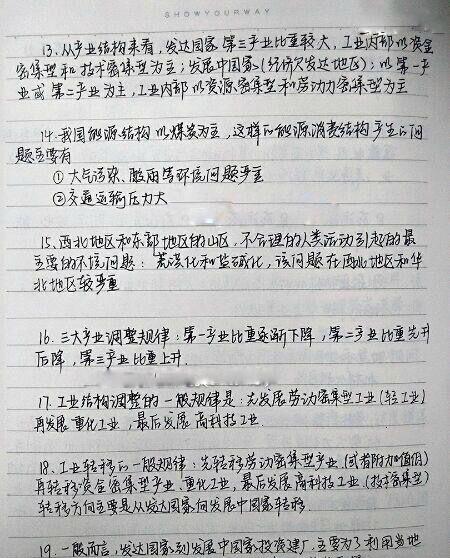 SHOWYOURWAY
13. 从产业结构来看，发达国家第三产业比重较大，工业内部以资金
密集型和技术密集型为主；发展中国家（经济欠发达地区）：以第一产
业或第二产业为主，工业内部以资源密集型和劳动力密集型为主
14. 我国能源结构以煤炭为主，这样的能源消费结构产生的问
题主要有
① 大气污染、酸雨等环境问题严重
② 交通运输压力大
15. 西北地区和东部地区的山区，不合理的人类活动引起的最
主要的环境问题：荒漠化和盐碱化，该问题在西北地区和华
北地区较严重
16. 三大产业调整规律：第一产业比重逐渐下降，第二产业比重先升
后降，第三产业比重上升.
17. 工业结构调整的一般规律是：先发展劳动密集型工业（轻工业）
再发展重化工业，最后发展高科技工业.
18. 工业转移的一般规律：先转移劳动密集型产业（或者附加值低）
再转移资金密集型产业，重化工业，最后发展高科技工业（技术密集型）
转移方向主要是从发达国家向发展中国家转移.
19. 一般而言，发达国家到发展中国家投资建厂，主要为了利用当地